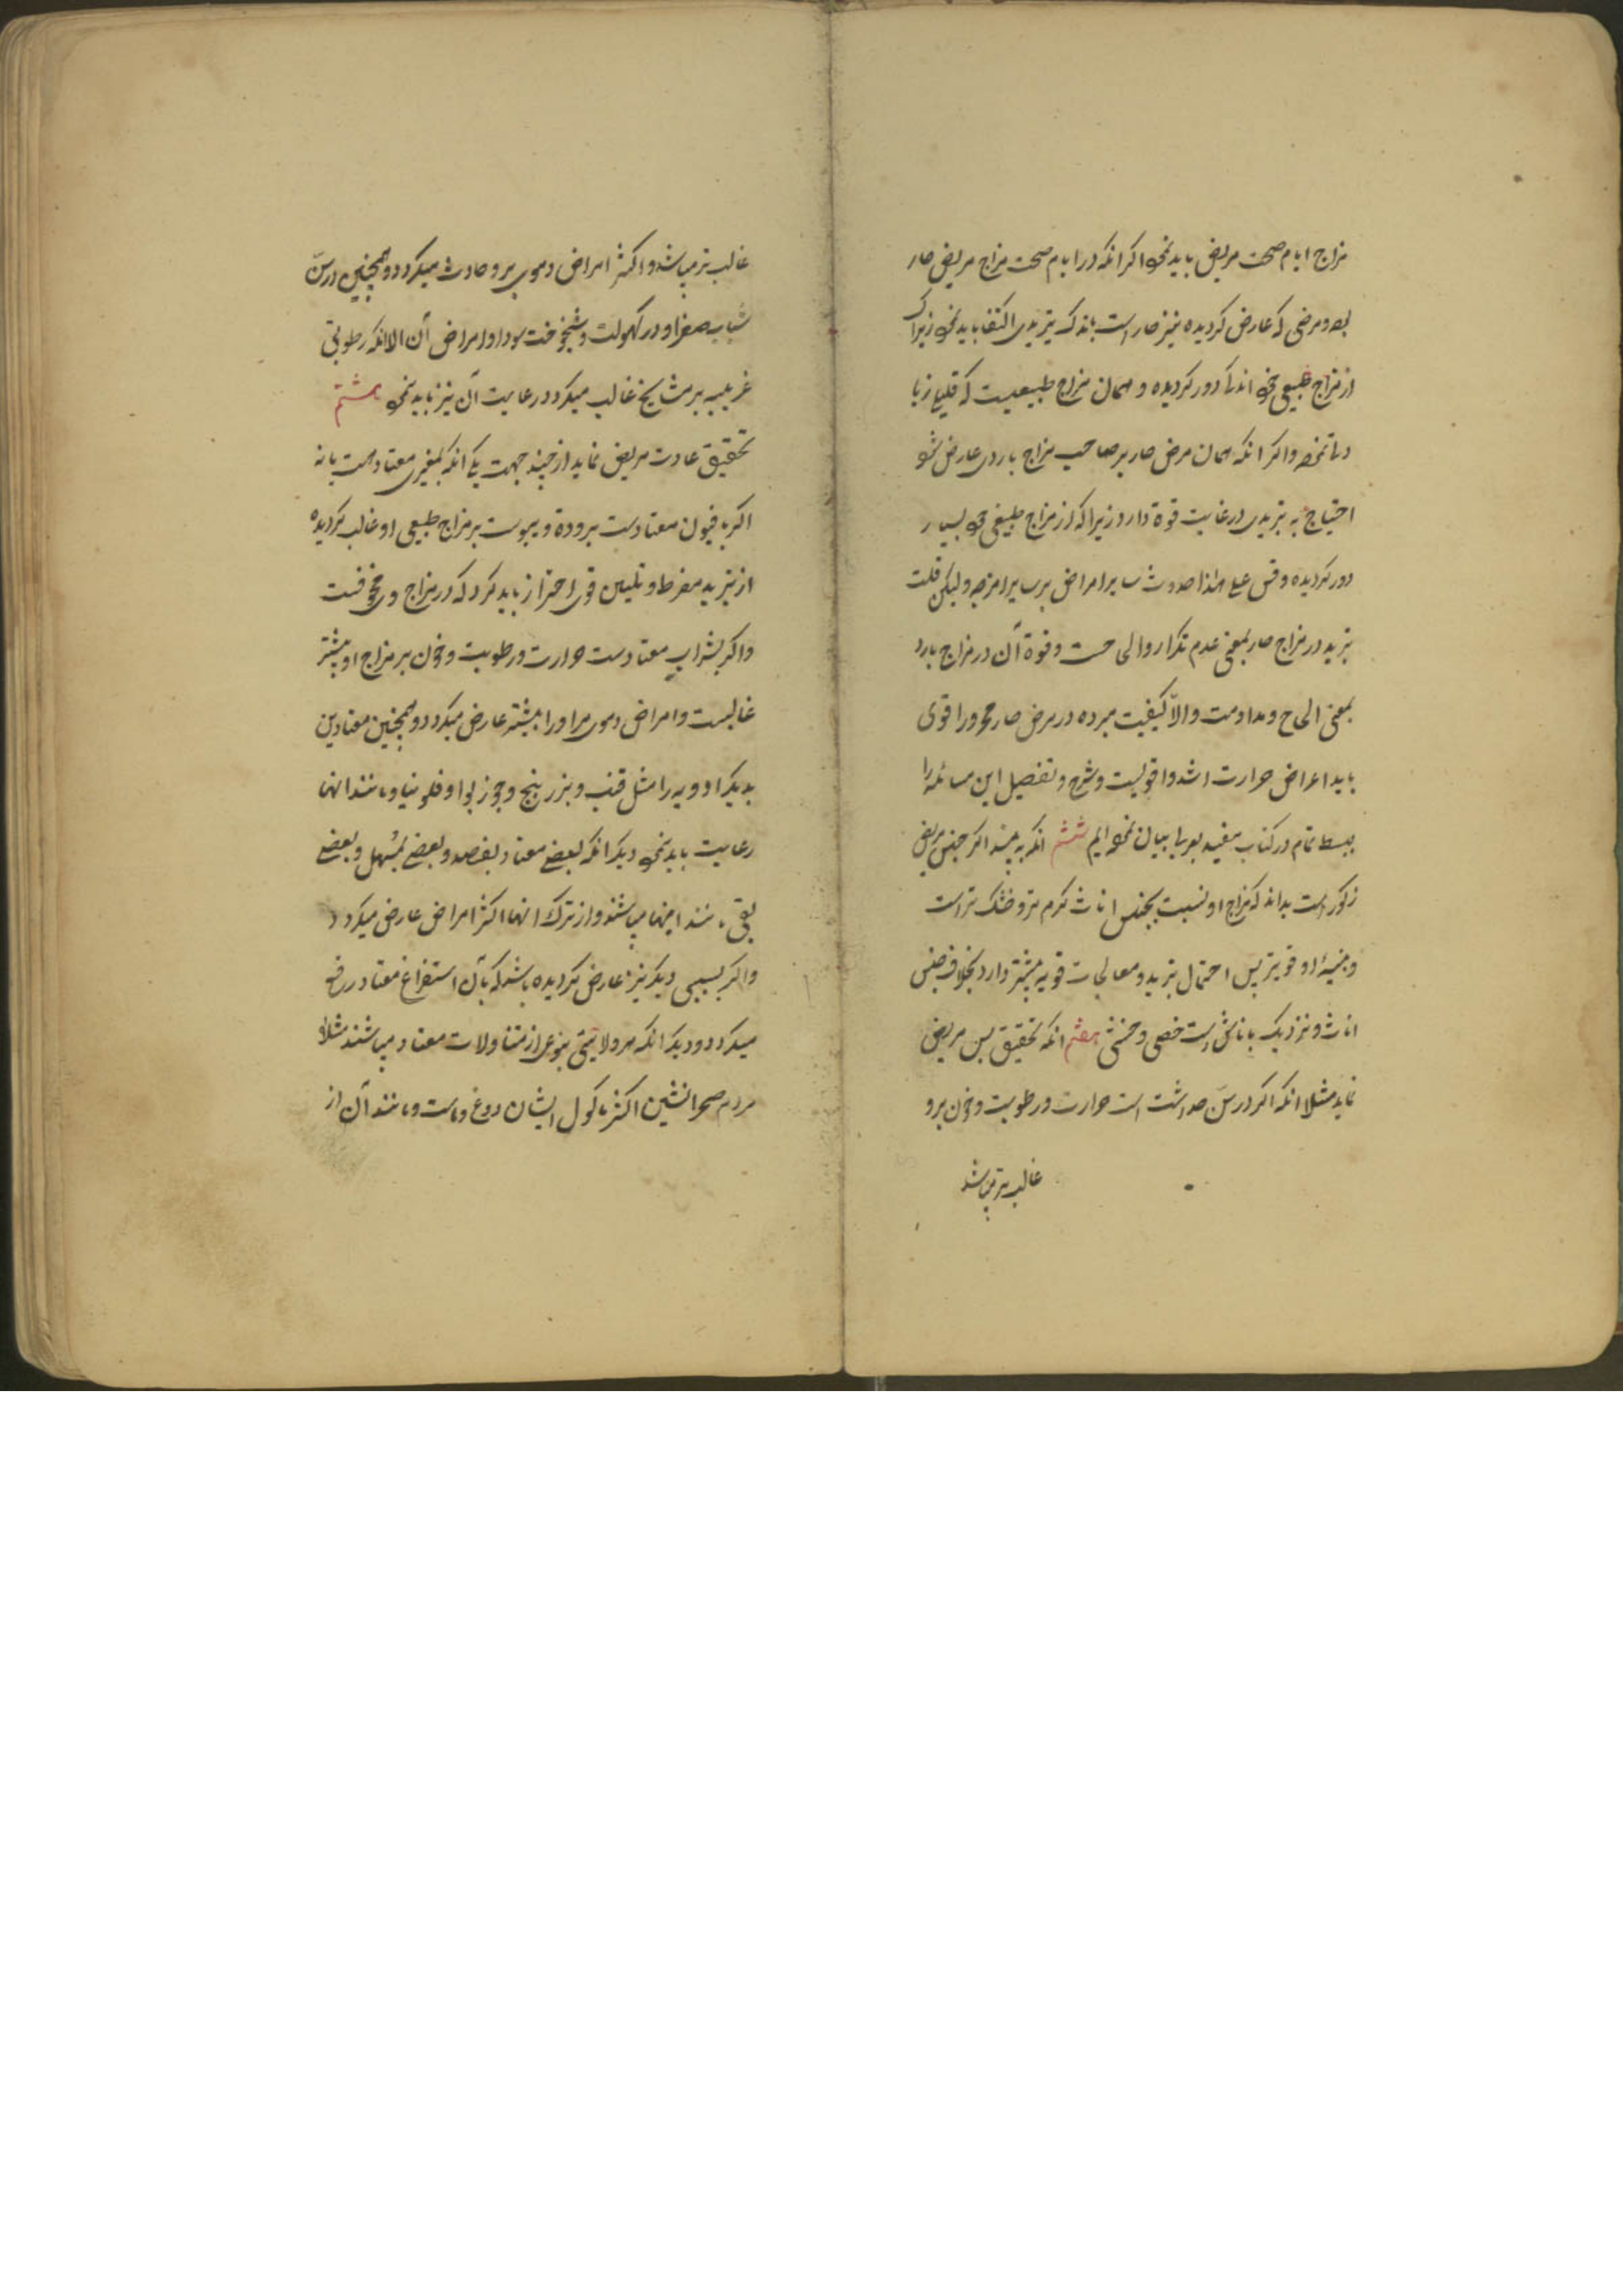 مزاج ایام صحت مریض باید نمود اکر انکه در ایام صحت مزاج مریض حار
بوده و مرضی که عارض کردیده نیز حار است باندک تبریدی اکتفا باید نمود زیراکه
از مزاج طبیعی خود اندک دور کردیده و همان مزاج طبیعیست که قلیلی زیا
دتی نموده و اکر انکه همان مرض حار بر صاحب مزاج باردی عارض شود
احتیاج به تبریدی در غایت قوة دارد زیرا که از مزاج طبیعی خود بسیار
دور کردیده و قس علی هذا حدوث سایر امراض بر سایر امزجه ولیکن قلت
تبرید در مزاج حار بمعنی عدم تکرار و الی حست و قوة آن در مزاج بارد
بمعنی الحاح و مداومت و الّا کیفیت مبرده در مرض حار محرور اقوی
باید اعراض حرارت اشد و اقویست و شرح و تفصیل این مسائله را
ببسط تمام در کتاب بیان نموده ایم ششم انکه به بیند اکر جنس مریض
ذکور است بداند که مزاج او نسبت بجنس اناث کرم تر و خشک تر است
و بنیهٔ او قویتر پس احتمال تبرید و معالجات قویه بیشتر دارد بخلاف جنس
اناث و نزدیک باناثست خصی و خنثی هفتم انکه تحقیق سن مریض
نماید مثلا انکه اکر در سنّ حداثت است حرارت و رطوبت و خون برو
غالب تر میباشد
غالب تر میباشد و اکثر امراض دموی برو حادث میکردد و همچنین در سنّ
شباب صفرا و در کهولت و شیخوخت سودا و امراض آن الا انکه رطوبتی
غریبیه بر مشایخ غالب میکردد رعایت آن نیز باید نمود هشتم
تحقیق عادت مریض نماید از چند جهت یکی انکه بمغیری معتاد هست یا نه
اکر بافیون معتادست برودة و یبوست بر مزاج طبیعی او غالب کردیده
از تبرید مفرط و تلیین قوی احتراز باید کرد که در مزاج وی مخوفست
و اکر بشراب معتادست حرارت و رطوبت و خون بر مزاج او بیشتر
غالبست و امراض دموی مر اورا بیشتر عارض میکردد و همچنین معتادین
بدیکر ادویه را مثل قنب و بزر بنج و جوز بوا و فلونیا و مانند انها
رعایت باید نمود دیکر انکه بعضی معتاد بفصد و بعضی بمسهل و بعضی
بقی مانند اینها میباشند و از ترک انها اکثر امراض عارض میکردد
و اکر بسببی دیکر نیز عارض کردیده باشد که بآن استفراغ معتاد رفع
میکردد و دیکر انکه هر ولایتی بنوعی از متناولات معتاد میباشند مثلا
مردم صحرانشین اکثر ماکول ایشان دوغ و ماست و مانند آن از